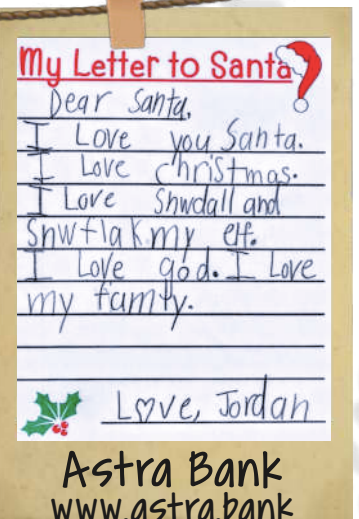 My Letter to Santa
Dear Santa,
I Love you Santa.
I Love christmas.
I Love Snwdall and
Snwflak.my elf.
I Love god. I Love
my famty.
Love, Jordan
Astra Bank
www.astra.bank